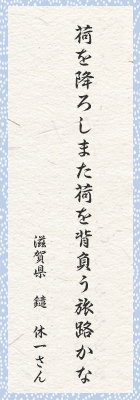 荷を降ろしまた荷を背負う旅路かな
滋賀県 鑓 休一さん